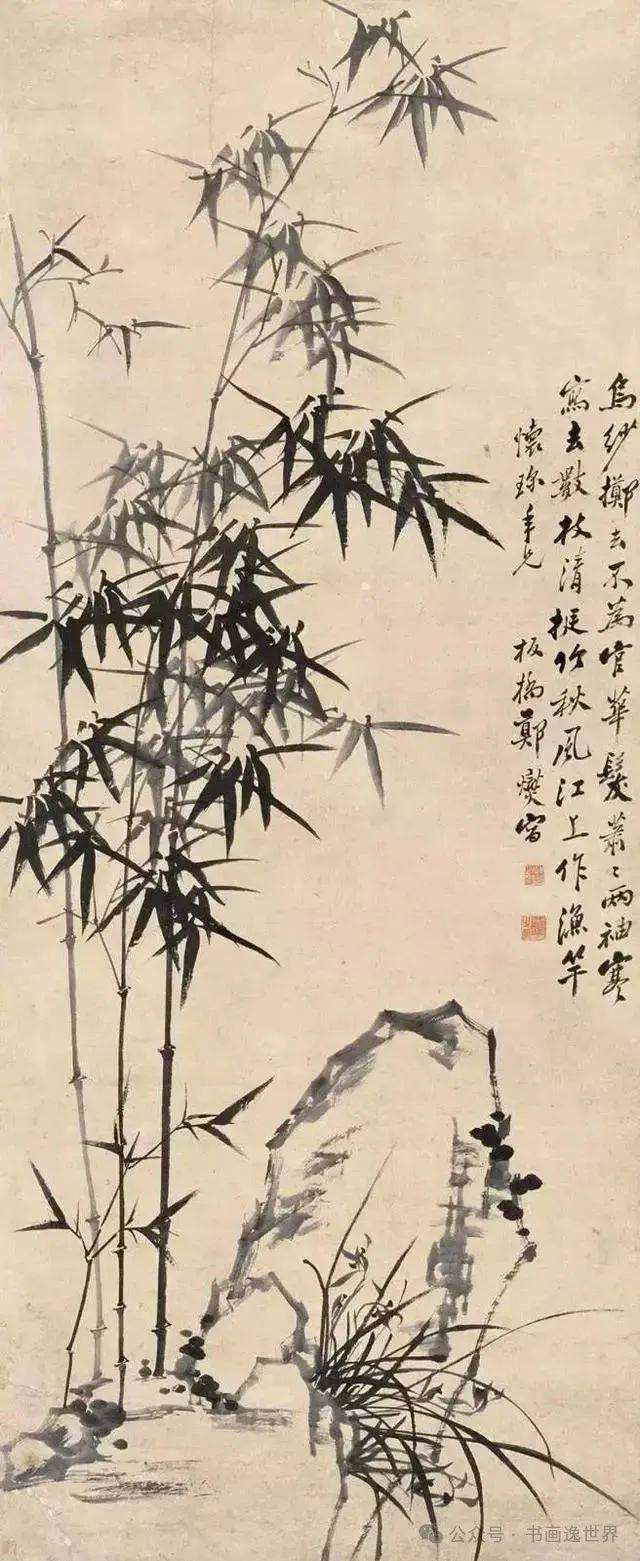 烏紗擲去不為官華髮蕭〻兩袖寒
寫去數枝清挺竹秋風江上作漁竿
懷珎年兄 板橋鄭燮寫
公众号 · 书画逸世界